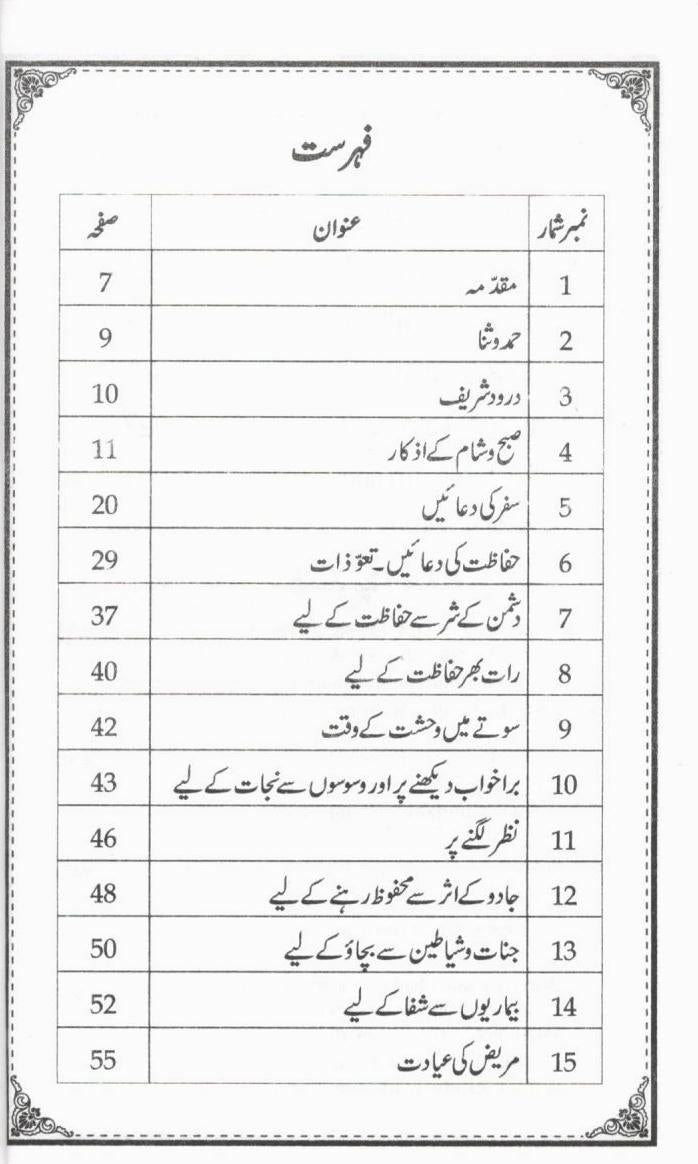 فہرست
نمبر شمار عنوان صفحہ
1 مقدّمہ 7
2 حمد و ثنا 9
3 درود شریف 10
4 صبح و شام کے اذکار 11
5 سفر کی دعائیں 20
6 حفاظت کی دعائیں۔ تعوّذات 29
7 دشمن کے شر سے حفاظت کے لیے 37
8 رات بھر حفاظت کے لیے 40
9 سوتے میں وحشت کے وقت 42
10 برا خواب دیکھنے پر اور وسوسوں سے نجات کے لیے 43
11 نظر لگنے پر 46
12 جادو کے اثر سے محفوظ رہنے کے لیے 48
13 جنات و شیاطین سے بچاؤ کے لیے 50
14 بیماریوں سے شفا کے لیے 52
15 مریض کی عیادت 55